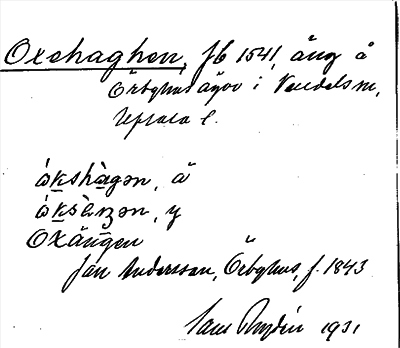 Oxehaghen, fb 1541, äng å
Örbyhus ägor i Vendels sn,
Uppsala l.
ὠkshàgən, ä
ὠksὰŋən, y
Oxängen
Jan Andersson, Örbyhus, f. 1843
1931